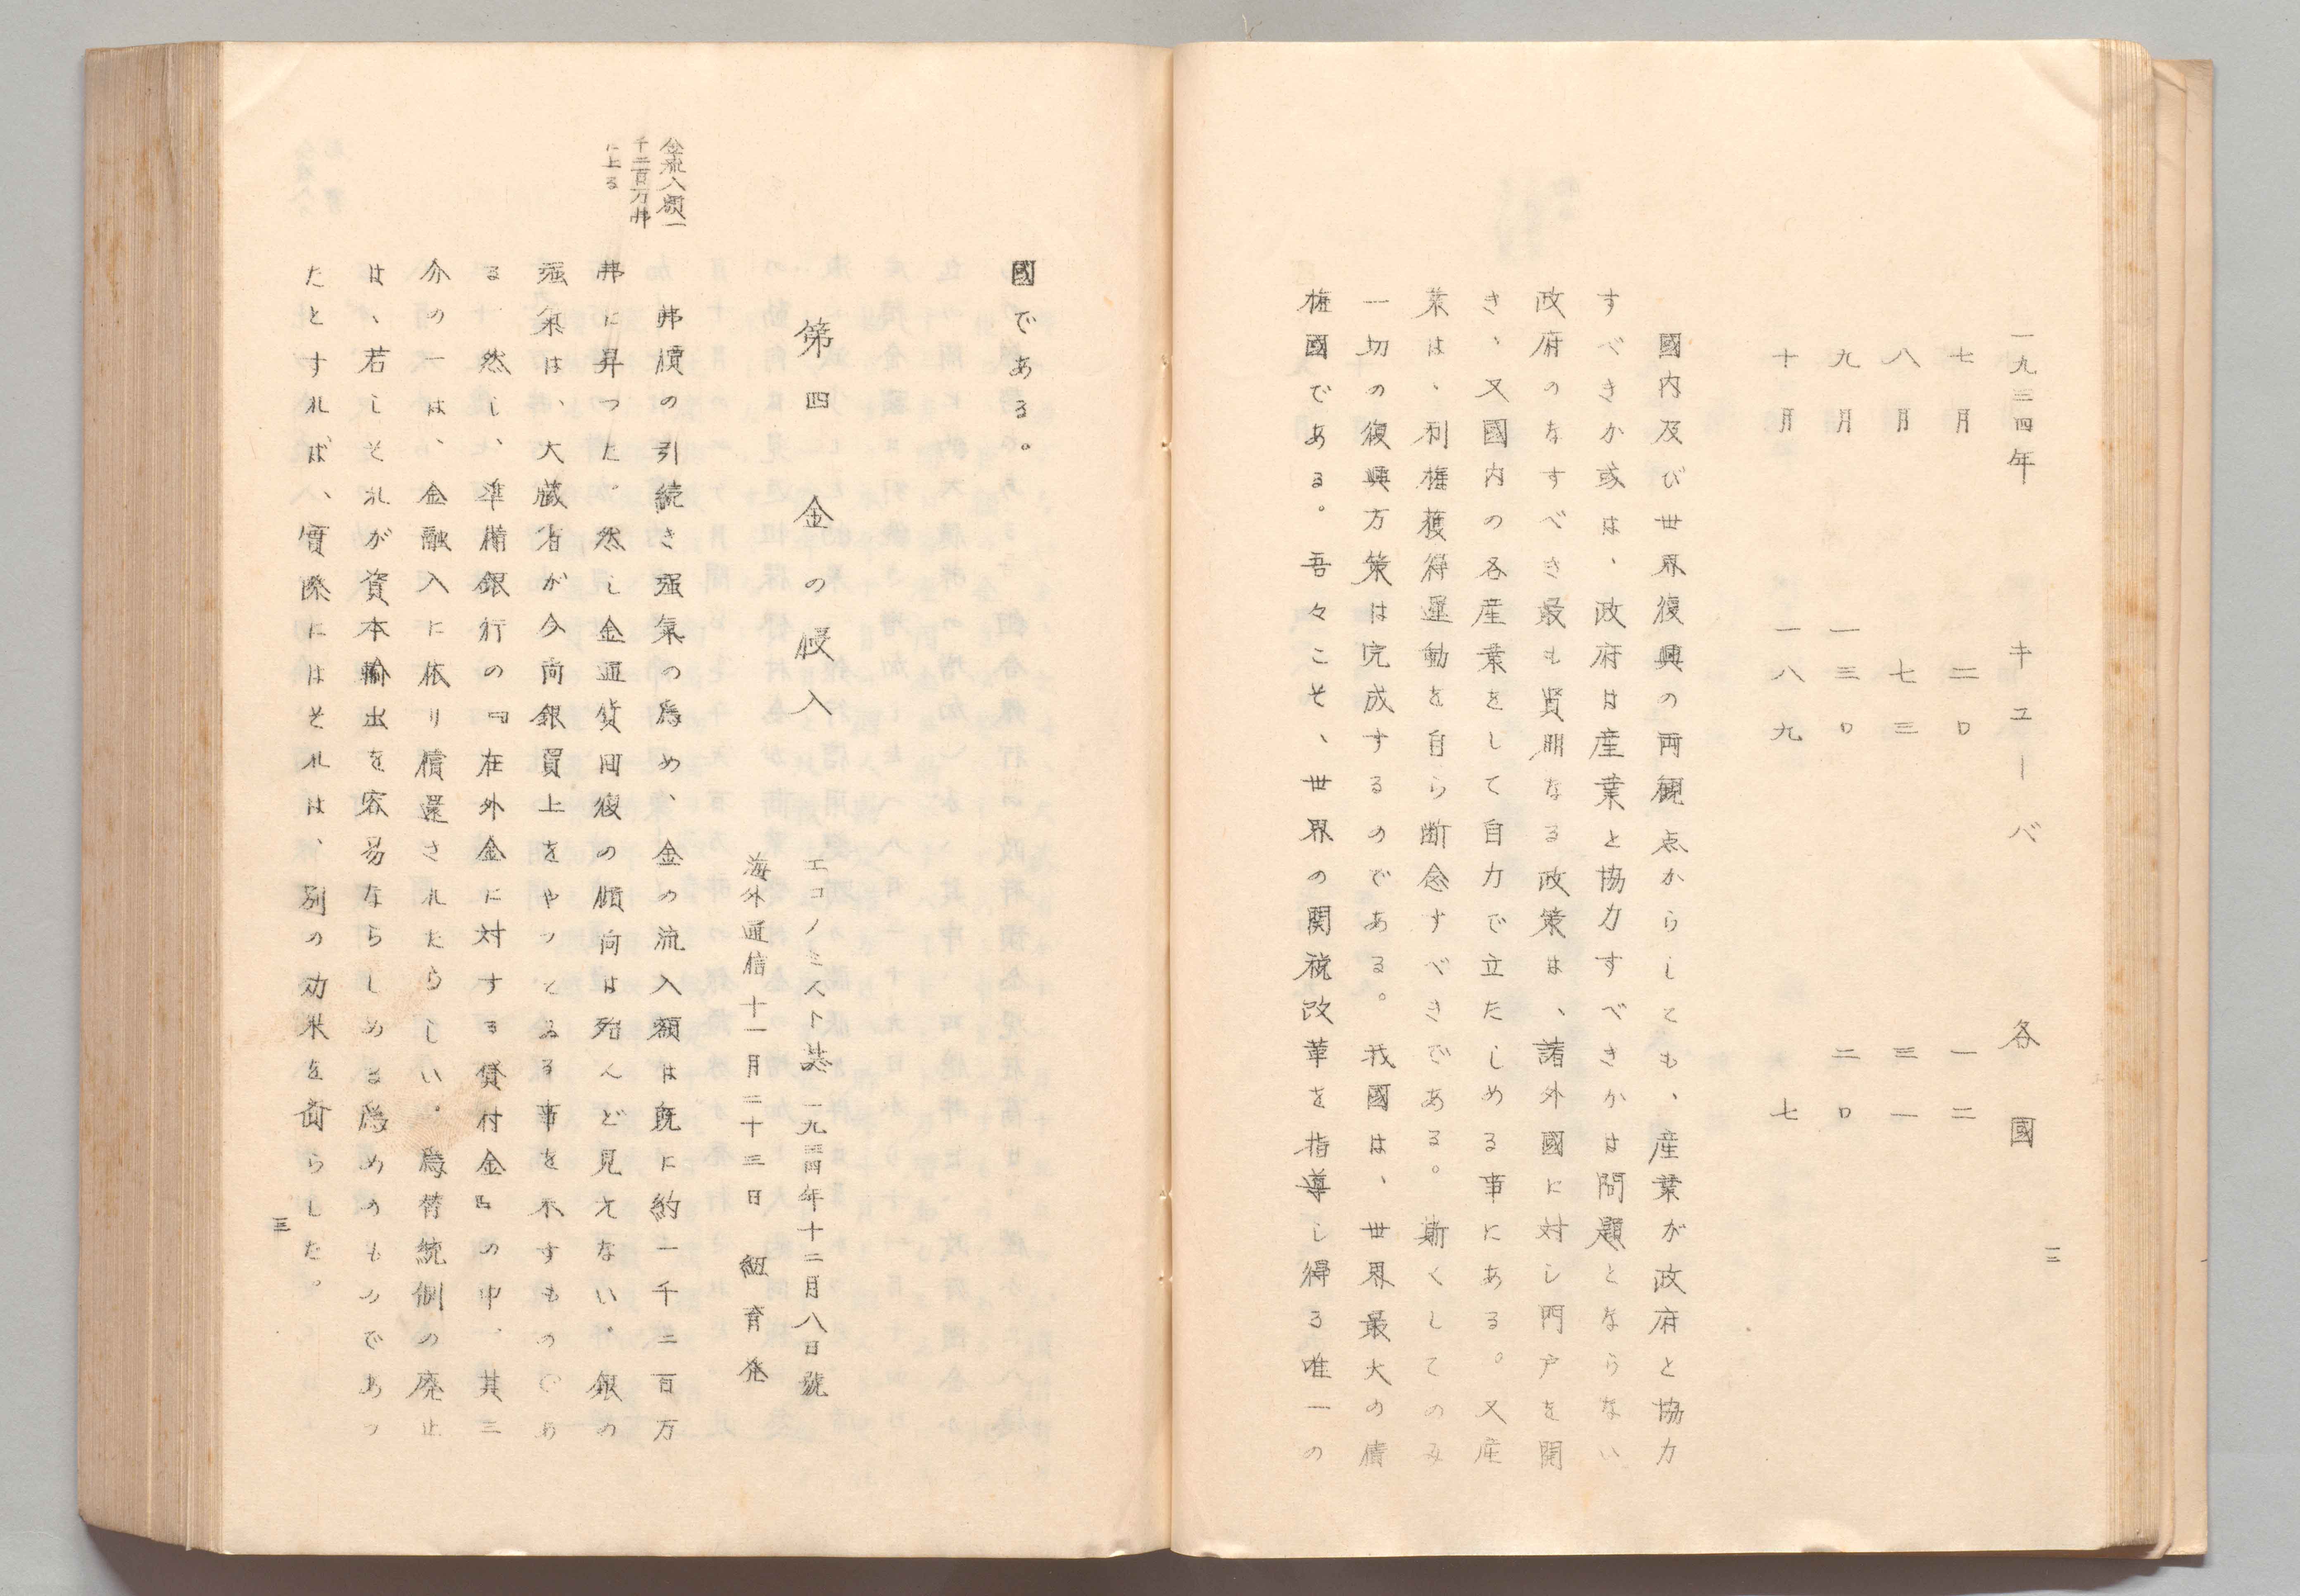 一九三四年　キューバ　各國
七月　一二〇　一二
八月　七三　三一
九月　一三〇　二〇
十月　一八九　七
國内及び世界復興の両観点からしても、産業が政府と協力
すべきか或は、政府は産業と協力すべきかは問題とならない
政府のなすべき最も賢明なる政策は、諸外國に対し門戸を開
き、又國内の各産業をして自力で立たしめる事にある。又産
業は、利権獲得運動を自ら断念すべきである。斯くしてのみ
一切の復興方策は完成するのである。我國は、世界最大の債
権國である。吾々こそ、世界の関税改革を指導し得る唯一の
二
國である。
第四　金の輸入
エコノミスト誌　一九三四年十二月八日號
海外通信　十一月二十三日　紐育発
金流入額一
千二百万弗
に上る
弗價の引続き强氣の爲め、金の流入額は既に約一千二百万
弗に昇つた。然し金通貨回復の傾向は殆んど見えない。銀の
强氣は、大藏省が今尚銀買上をやつとゐる事を示すものであ
る。然し、準備銀行の『在外金に対する貸付金』の中、其三
分の一は、金融入に依り償還されたらしい。爲替統制の廃止
は、若しそれが資本輸出を容易ならしめる爲めのものであつ
たとすれば、實際にはそれは、別の効果を齎らした。
三